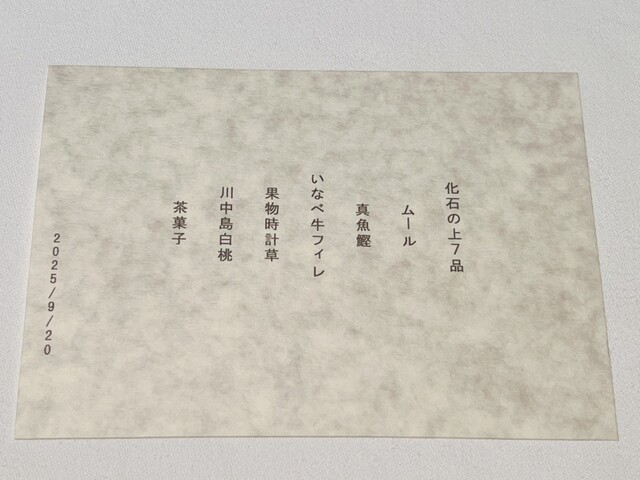 化石の上7品
ムール
真魚鰹
いなべ牛フィレ
果物時計草
川中島白桃
茶菓子
2025/9/20